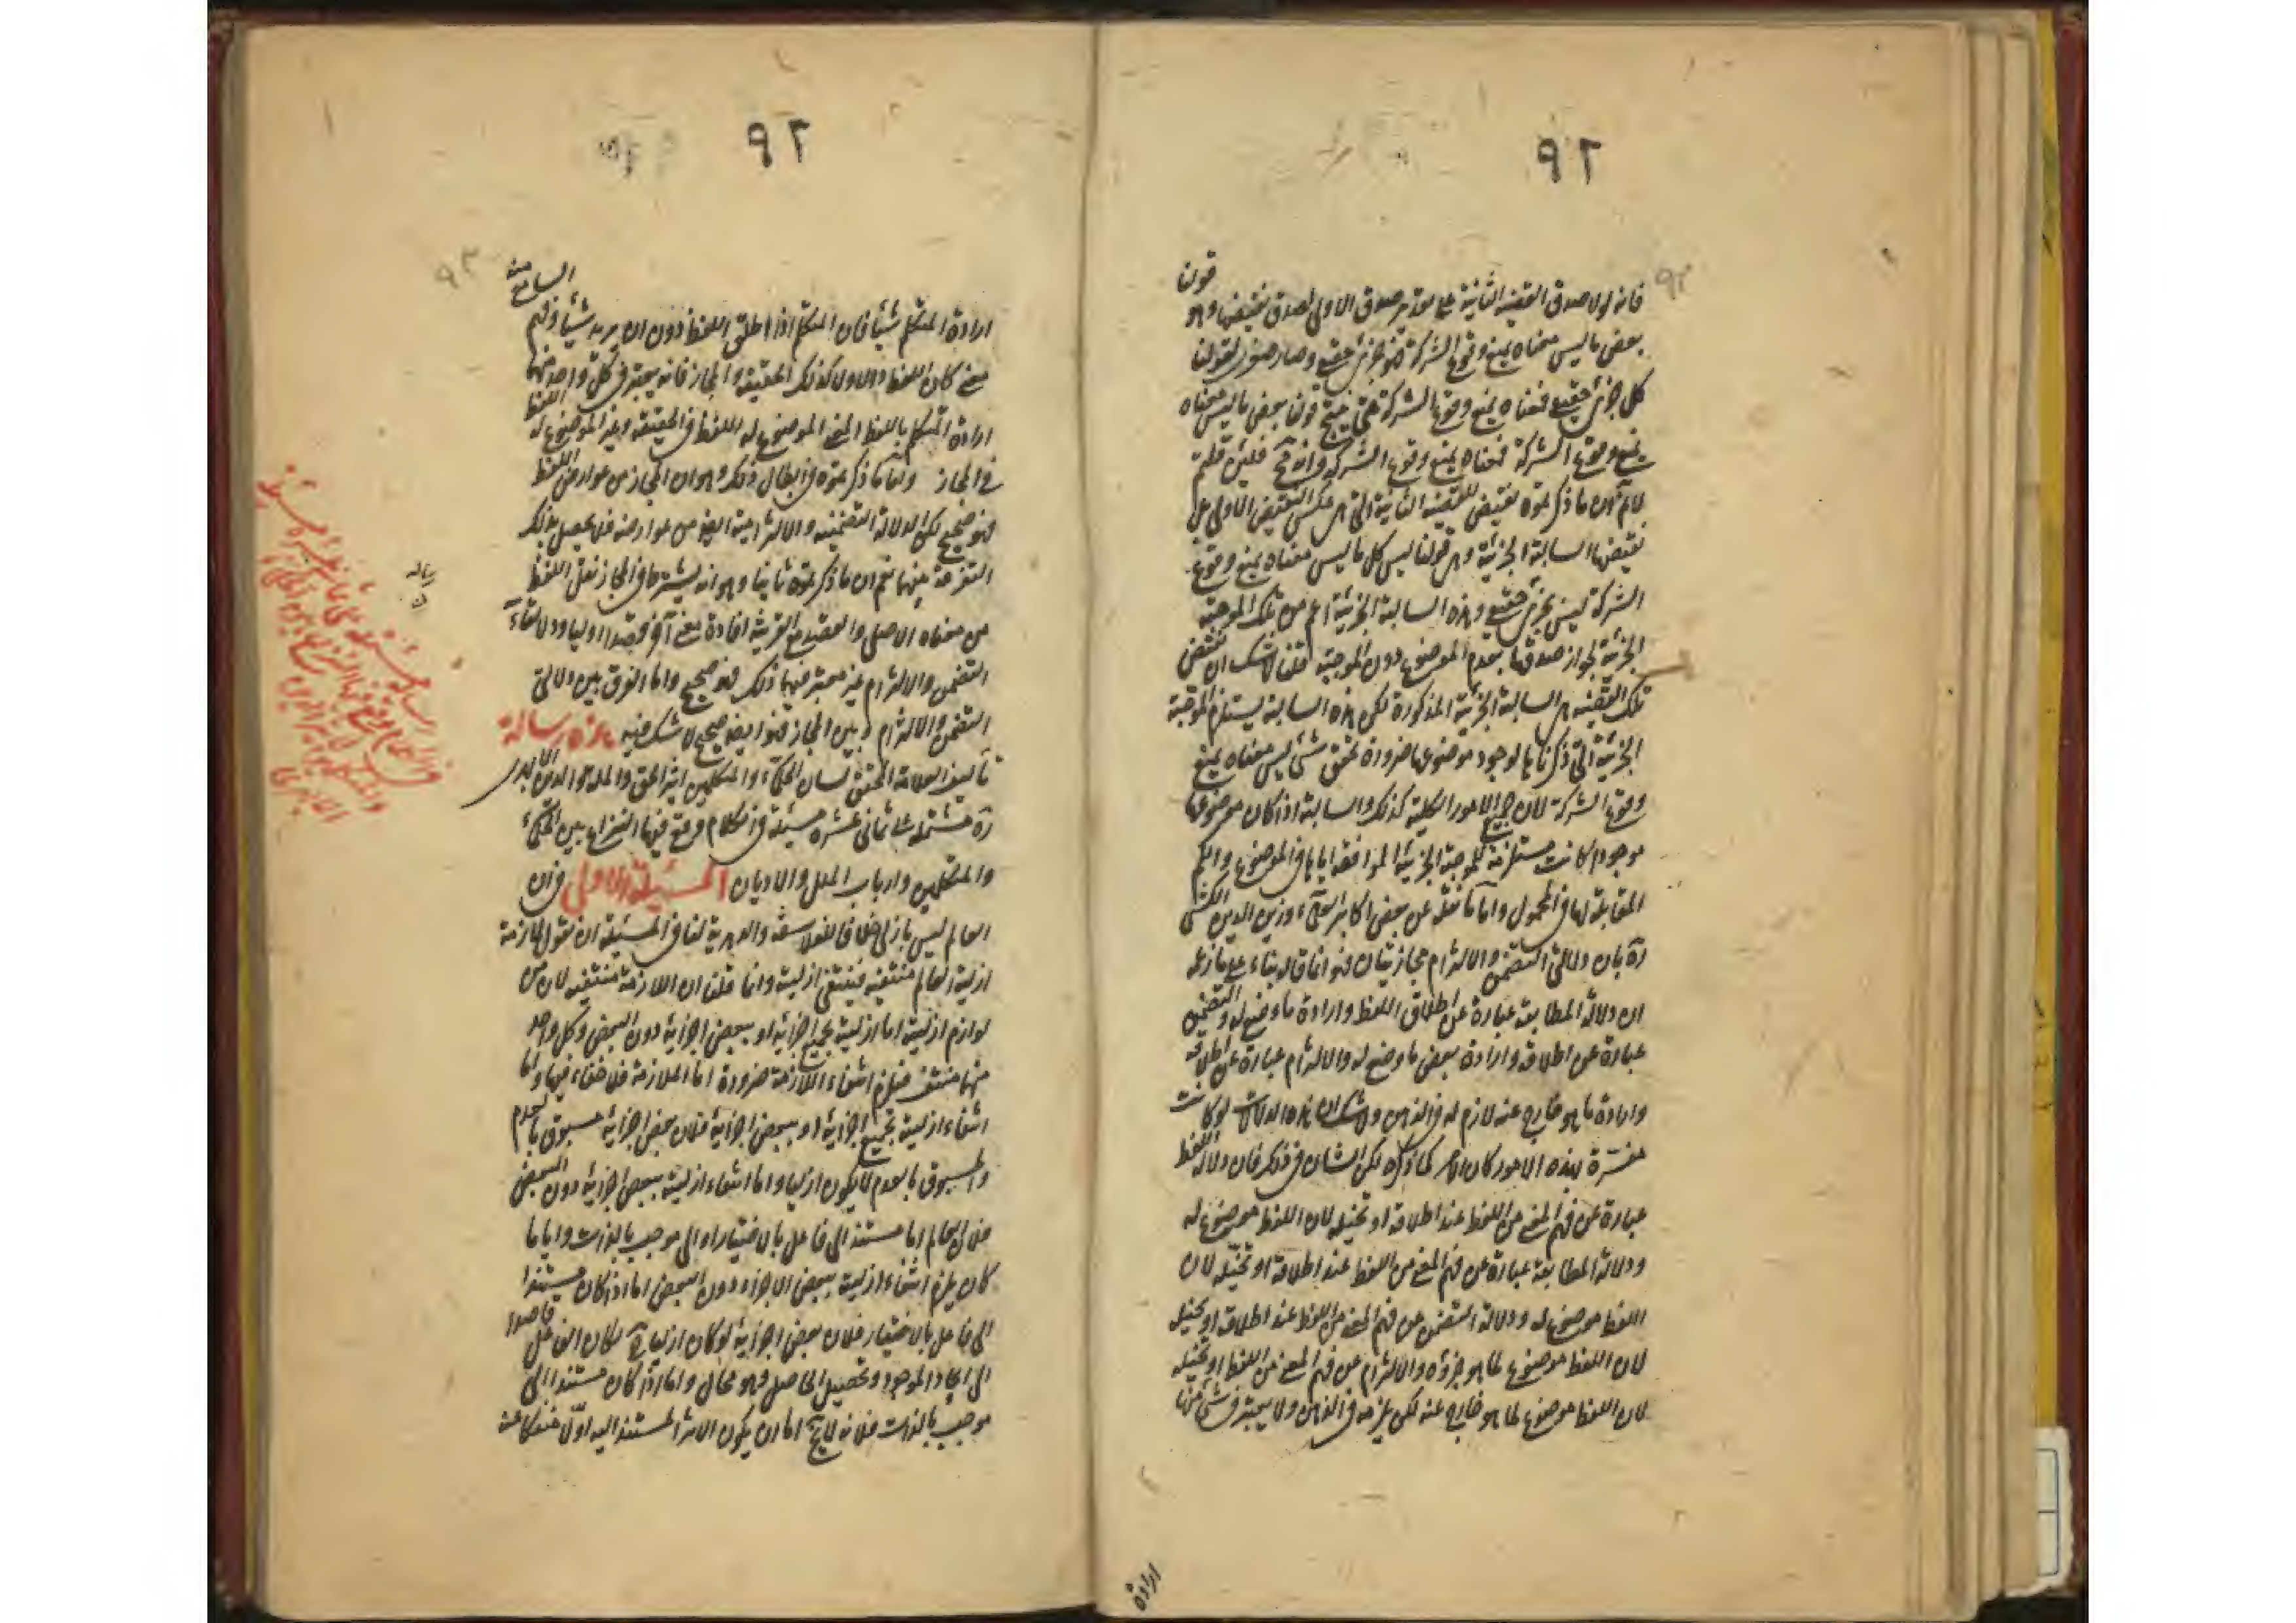 ٩٢
٩٢
قولنا
فانه لولا صدق القضية الثانية على تقدير صدق الاولى لصدق نقيضها وهو
بعض ما ليس معناه يمنع وقوع الشركة فهو جزئى حقيقى وصار صغرى لقولنا
كل جزئى حقيقى فمعناه يمنع وقوع الشركة حتى ينتج قولنا بعض ما ليس معناه
يمنع وقوع الشركة فمعناه يمنع وقوع الشركة وانه مح فلئن قلتم
لانم ان ما ذكرتموه نقيض للقضية الثانية التى هى عكس النقيض للاولى بل
نقيضها السالبة الجزئية وهى قولنا ليس كل ما ليس معناه يمنع وقوع
الشركة ليس بجزئى حقيقى وهذه السالبة الجزئية اعم من تلك الموجبة
الجزئية لجواز صدقها بعدم الموضوع دون الموجبة قلنا لا شك ان نقيض
تلك القضية هى السالبة الجزئية المذكورة لكن هذه السالبة يستلزم الموجبة
الجزئية التى ذكرناها لوجود موضوعها ضرورة تحقق شئ ليس معناه يمنع
وقوع الشركة لان جميع الامور الكلية كذلك والسالبة اذا كان موضوعها
موجودا كانت مستلزمة للموجبة الجزئية الموافقة اياها فى الموضوع والكم
المقابلة لها فى المحمول واما ما نقله عن بعض اكابر العلماء وزين الدين الكشى
ره بان دلالتى التضمن والالتزام مجازيتان فهو انما قاله بناء على ما زعمه
ان دلالة المطابقة عبارة عن اطلاق اللفظ وارادة ما وضع له والتضمن
عبارة عن اطلاقه وارادة بعض ما وضع له والالتزام عبارة عن اطلاقه
وارادة ما هو خارج عنه لازم له فى الذهن ولا شك ان هذه الدلالات لو كانت
مفسرة بهذه الامور كان الامر كما ذكره لكن الشان فى ذلك فان دلالة اللفظ
عبارة عن فهم المعنى من اللفظ عند اطلاقه او تخيله لان اللفظ موضوع له
ودلالة المطابقة عبارة عن فهم المعنى من اللفظ عند اطلاقه او تخيله لان
اللفظ موضوع له ودلالة التضمن عن فهم المعنى من اللفظ عند اطلاقه او تخيله
لان اللفظ موضوع لما هو جزؤه والالتزام عن فهم المعنى من اللفظ او تخيله
لان اللفظ موضوع لما هو خارج عنه لكن يلزمه فى الذهن ولا يعتبر فى شئ منها
ارادة
٩٢
٩٣
السامع منه
ارادة المتكلم شيئا فان المتكلم اذا اطلق اللفظ دون ان يريد شيئا وفهم
معنى كان اللفظ دالا ولا كذلك الحقيقة والمجاز فانه يعتبر فى كل واحد منهما
ارادة المتكلم باللفظ المعنى الموضوع له اللفظ فى الحقيقة وغير الموضوع له اللفظ
فى المجاز واما ما ذكرتموه فى ابطال ذلك وهو ان المجاز من عوارض اللفظ
فهو صحيح لكن الدلالة التضمنية والالتزامية ايضا من عوارضه فلا يحصل بذلك
التفرقة بينهما نعم ان ما ذكرتموه ثانيا وهو انه يشترط فى المجاز نقل اللفظ
من معناه الاصلى والقصد مع القرينة افادة معنى آخر قصدا اوليا ودلالتا
التضمن والالتزام غير معتبر فيهما ذلك فهو صحيح واما الفرق بين دلالتى
التضمن والالتزام وبين المجاز فهو ايضا صحيح لا شك فيه هذه رسالة
تأليف العلامة المحقق لسان الحكماء والمتكلمين اثير الحق والملة والدين الابهرى
ره مشتملة على ثمانى عشرة مسئلة فى الكلام وقع فيها النزاع بين الحكماء
والمتكلمين وارباب الملل والاديان المسئلة الاولى فى ان
العالم ليس بازلى خلافا للفلاسفة والدهرية لنا فى المسئلة ان نقول لازمة
ازلية العالم منتفية فينتفى ازليته وانما قلنا ان اللازمة منتفية لان من
لوازم ازليته اما ازليته بجميع اجزائه او ببعض اجزائه دون البعض وكل واحد
منهما منتف فيلزم انتفاء اللازمة ضرورة اما الملازمة فلا خفاء فيها واما
انتفاء ازليته بجميع اجزائه او ببعض اجزائه فلان بعض اجزائه مسبوق بالعدم
والمسبوق بالعدم لا يكون ازليا واما انتفاء ازليته ببعض اجزائه دون البعض
فلان العالم اما مستند الى فاعل بالاختيار او الى موجب بالذات وايا ما
كان يلزم انتفاء ازليته ببعض الاجزاء دون البعض اما اذا كان مستندا
الى فاعل بالاختيار فلان بعض اجزائه لو كان ازليا ح لكان الفاعل قاصدا
الى ايجاد الموجود وتحصيل الحاصل فهو محال واما اذا كان مستندا الى
موجب بالذات فلانه لا يخ اما ان يكون الاثر المستند اليه اولا منفكا عنه